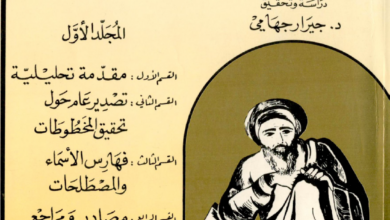 دراسة وتحقيق
د. جيرار جهامي
المجلد الأول
القسم الأول : مقدمة تحليلية
القسم الثاني : تصدير عام حول
تحقيق المخطوطات
القسم الثالث : فهارس الأسماء
والمصطلحات
القسم الرابع : مصادر ومراجع